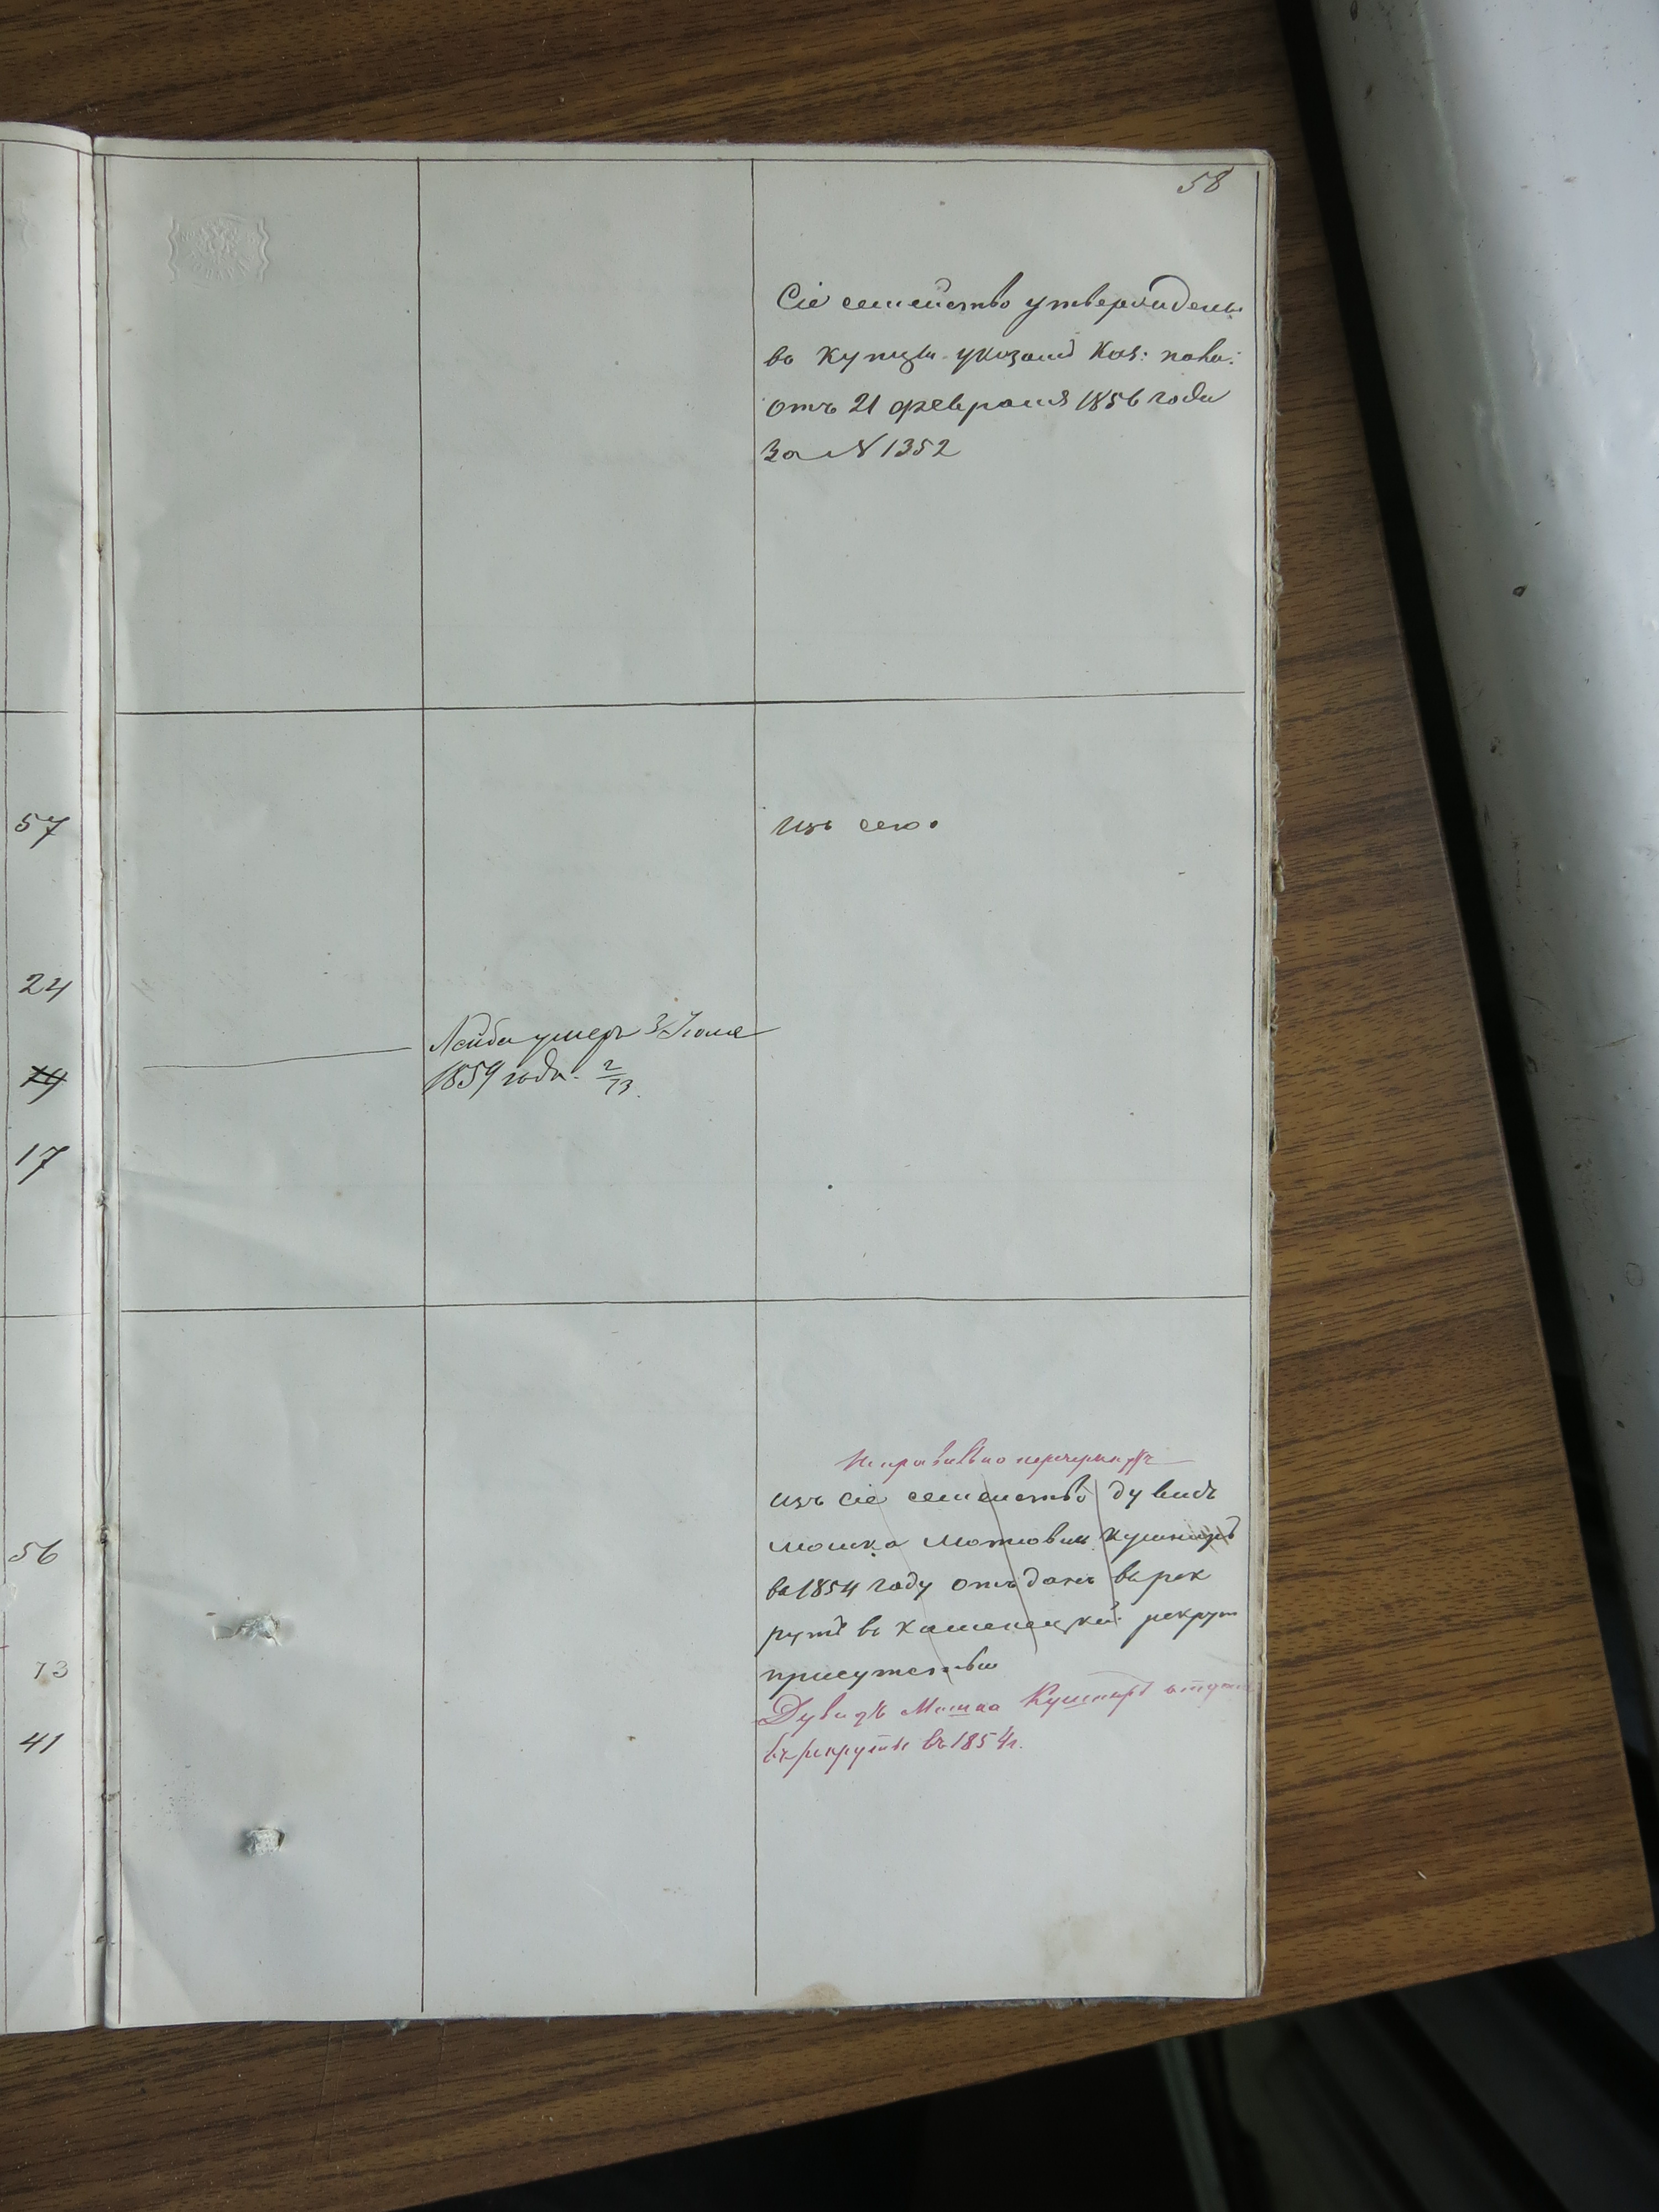 58
Сіе семейство утверждены
въ Купцы указомъ Каз: пала:
отъ 21 февраля 1856 года
За N 1352
57
изъ сего
24
Лейба умеръ 3 Іюля
1859 года. 2/73.
17
Неправильно перечеркнутъ
изъ сіе семейство дувидъ
мошка мотовичъ кушниръ
въ 1854 году отъданъ въ рек
рутъ въ каменецкій рекрут
56
присутствіи
73
Дувидъ Мошка Кушниръ отданъ
41
въ рекруты въ 1854 г.